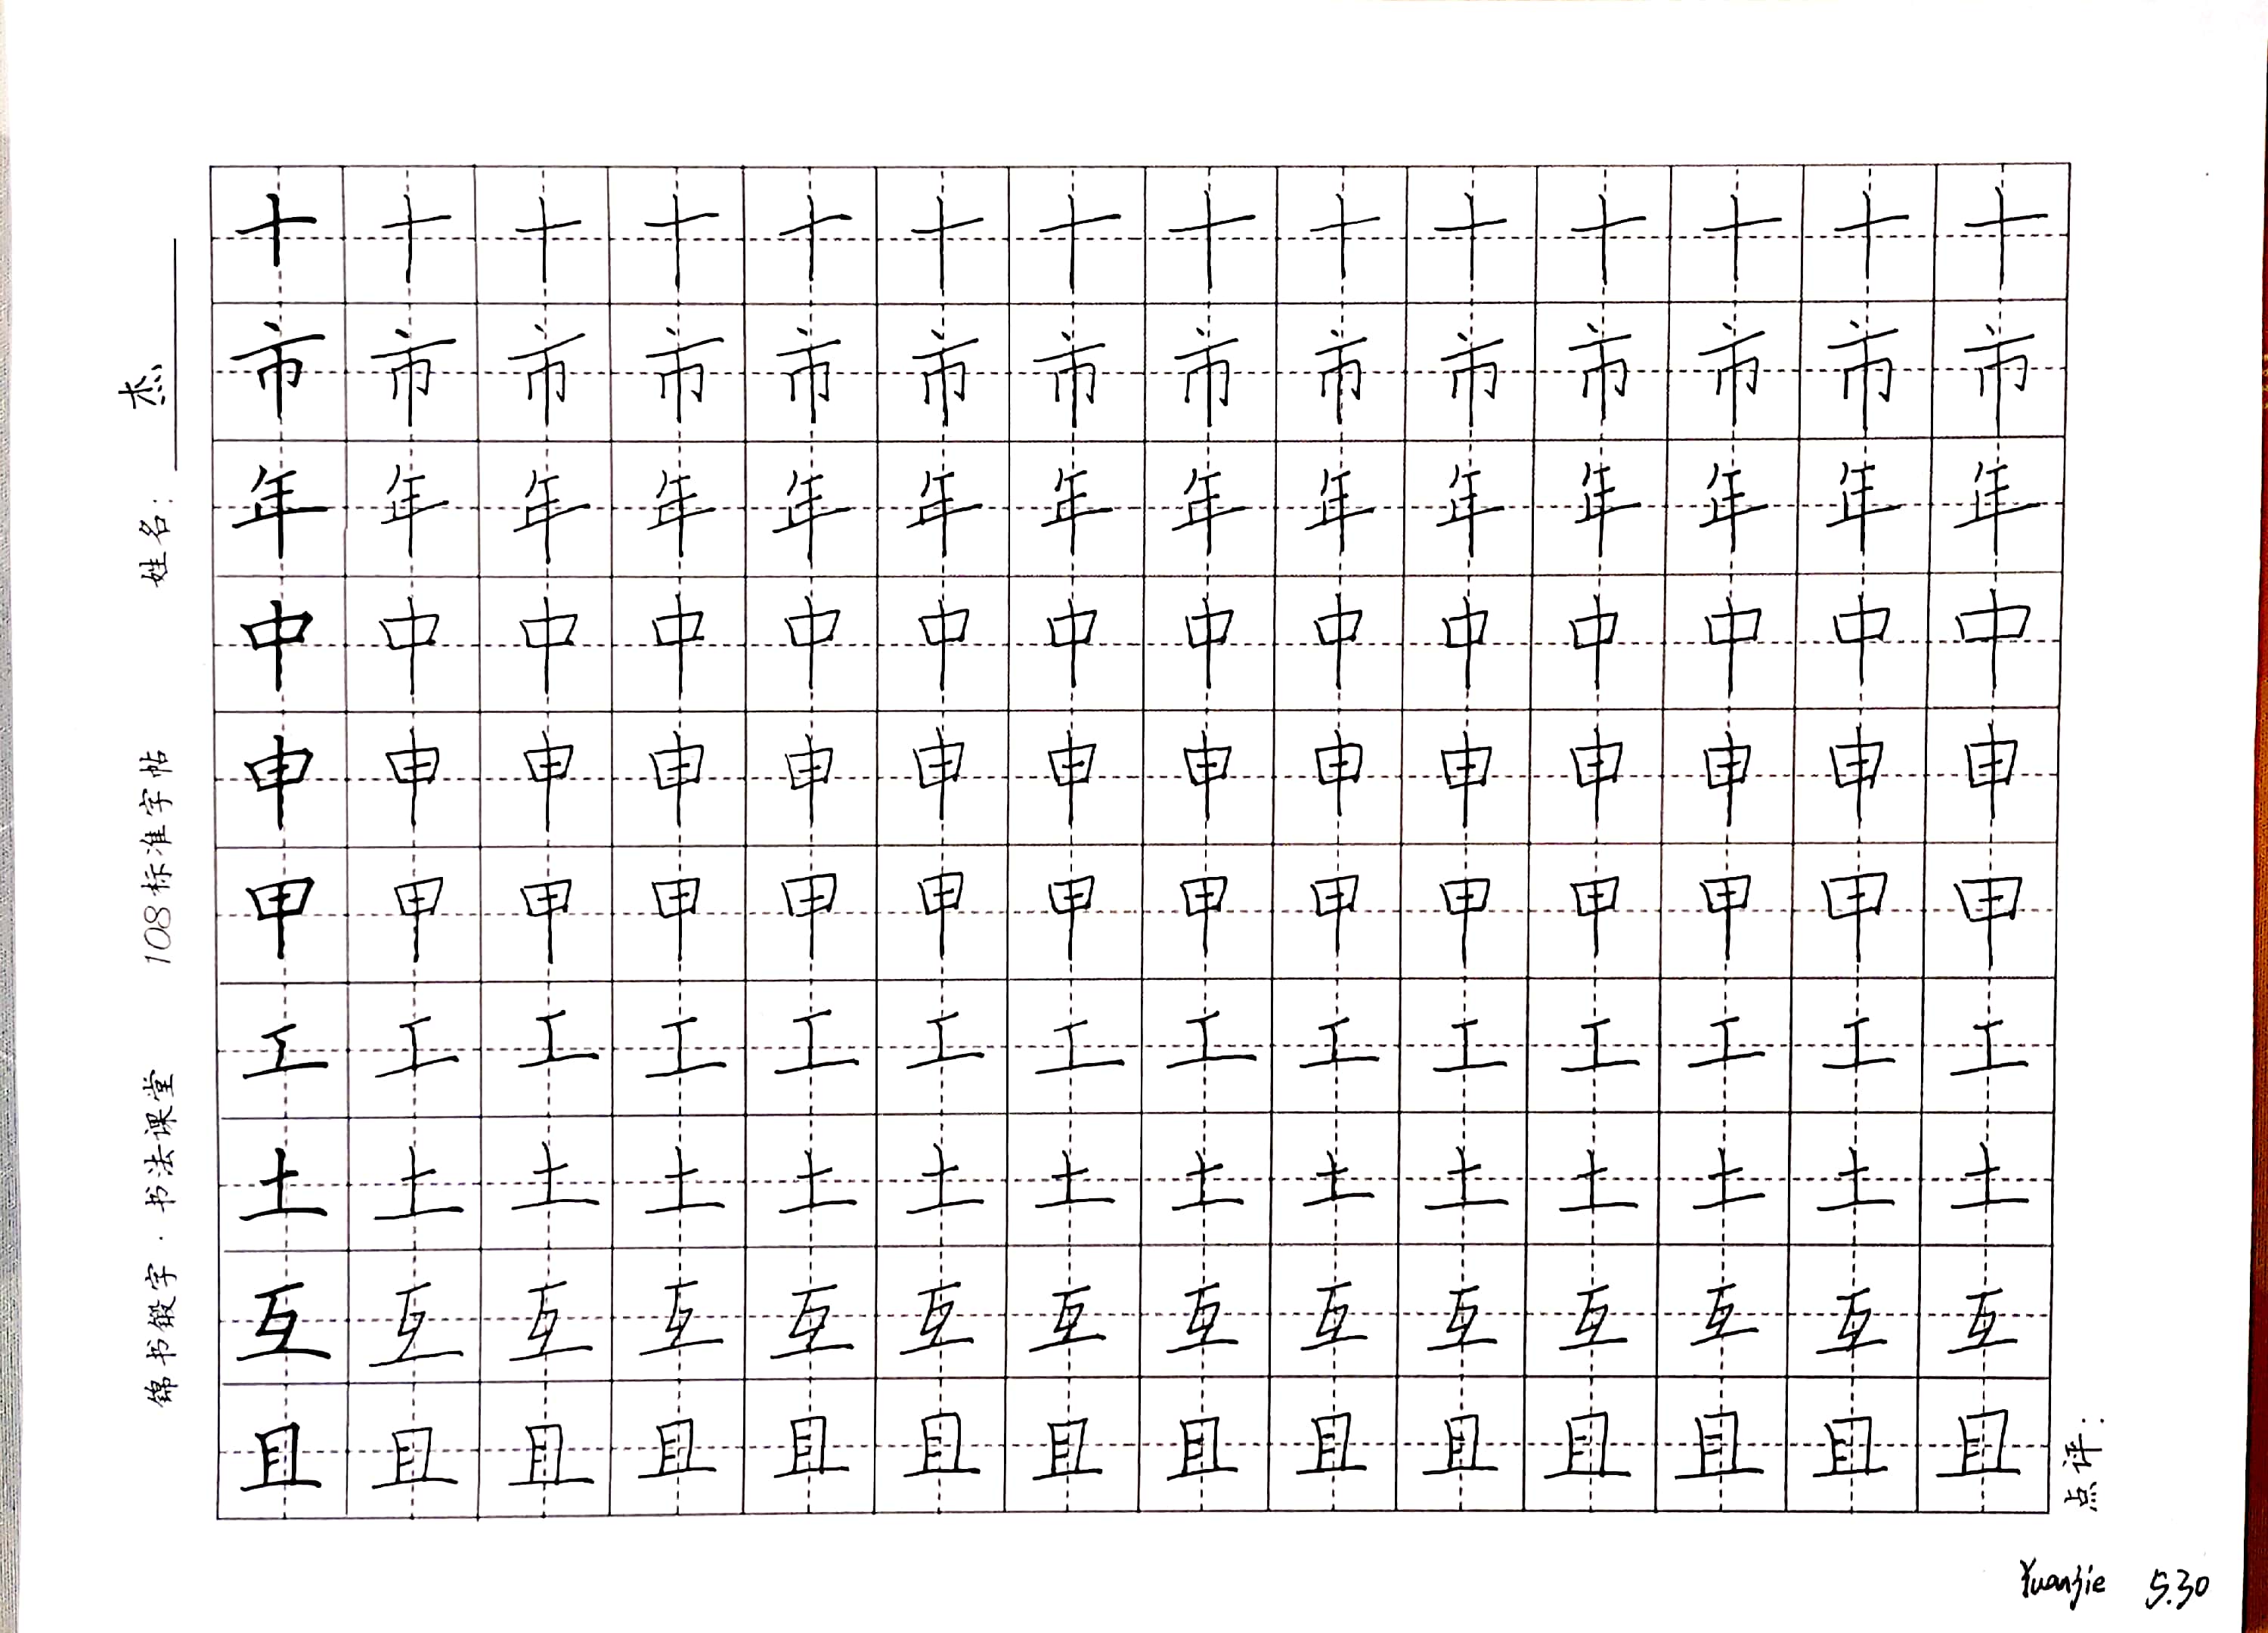 锦书锻字·书法课堂 108标准字帖 姓名：杰
十十十十十十十十十十十十十十
市市市市市市市市市市市市市市
年年年年年年年年年年年年年年
中中中中中中中中中中中中中中
申申申申申申申申申申申申申申
甲甲甲甲甲甲甲甲甲甲甲甲甲甲
工工工工工工工工工工工工工工
土土土土土土土土土土土土土土
互互互互互互互互互互互互互互
且且且且且且且且且且且且且且
点评：
Yuanjie 5.30